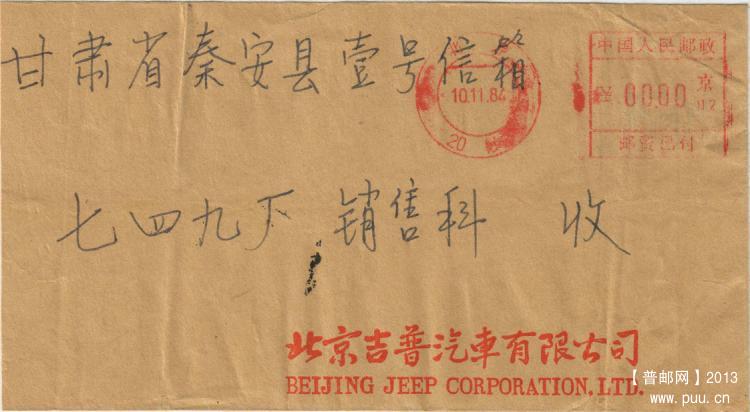 甘肃省秦安县壹号信箱
10.11.84
20
中国人民邮政
京
0000
邮资已付
七四九厂 销售科 收
北京吉普汽車有限公司
BEIJING JEEP CORPORATION, LTD.
【普邮网】2013
www.puu.cn